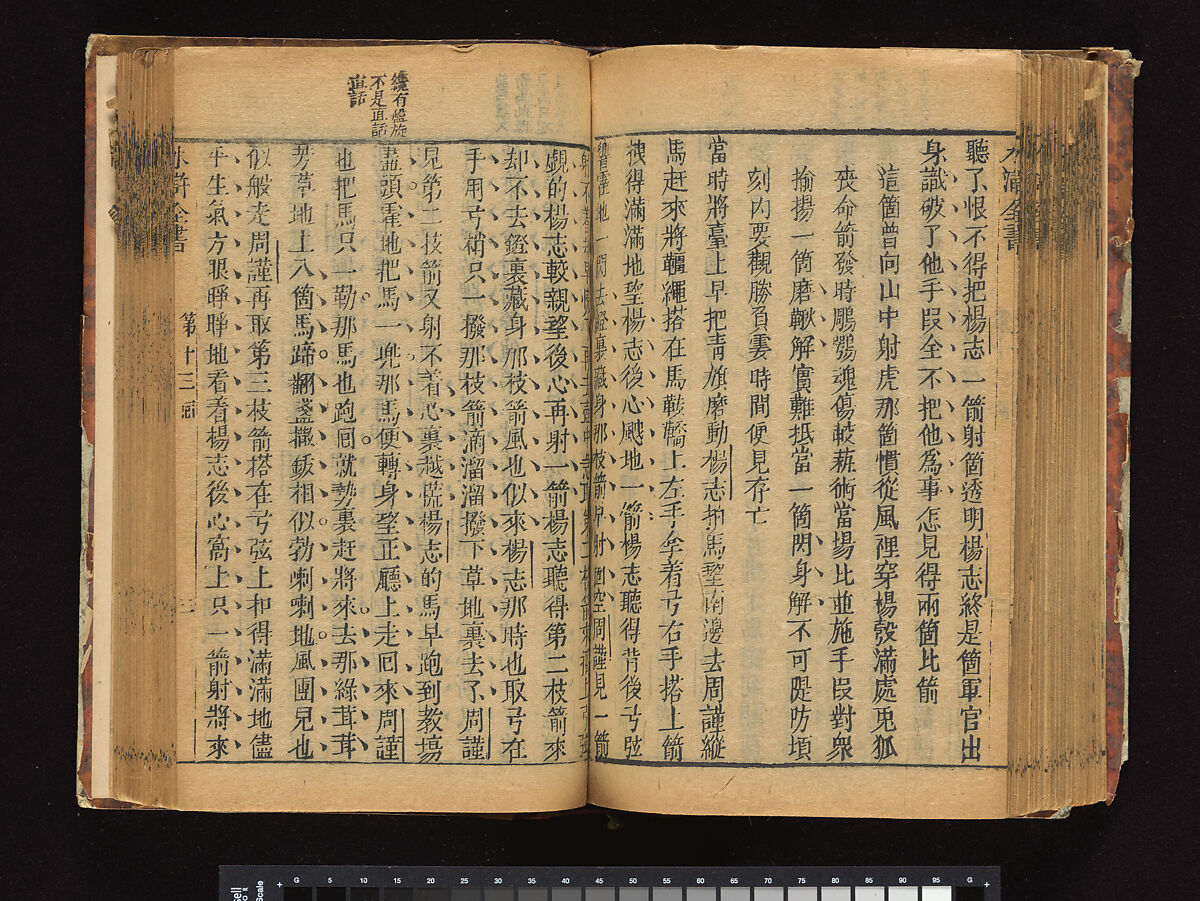 水滸全書
聽了恨不得把楊志一箭射箇透明楊志終是箇軍官出
身識破了他手段全不把他為事怎見得兩箇比箭
這箇曾向山中射虎那箇慣從風裡穿楊彀滿處兎狐
喪命箭發時鵰鶚魂傷較藝術當場比並施手段對衆
揄揚一箇磨鞦解實難抵當一箇閃身解不可隄防頃
刻内要觀勝負霎時間便見存亡
當時將臺上早把靑旗磨動楊志拍馬望南邊去周謹縱
馬赶來將韁繩搭在馬鞍鞽上左手拿着弓右手搭上箭
拽得滿地望楊志後心颼地一箭楊志聽得背後弓弦
響霍地一閃去鐙裏藏身那枝箭早射箇空周謹見一箭
射不着却早慌了再去壺中急取第二枝箭來搭上弓弦
覷的楊志較親望後心再射一箭楊志聽得第二枝箭來
却不去鐙裏藏身那枝箭風也似來楊志那時也取弓在
手用弓梢只一撥那枝箭滴溜溜撥下草地裏去了周謹
纔有盤旋
不是直話
直話
見第二枝箭又射不着心裏越慌楊志的馬早跑到教塲
盡頭霍地把馬一兜那馬便轉身望正廳上走回來周謹
也把馬只一勒那馬也跑回就勢裏赶將來去那綠茸茸
芳草地上八箇馬蹄翻盞撒鈸相似勃喇喇地風團兒也
似般走周謹再取第三枝箭搭在弓弦上扣得滿滿地儘
平生氣力眼睜睜地看着楊志後心窩上只一箭射將來
水滸全書 第十三回 三
G 5 10 15 20 25 30 35 40 45 50 55 60 65 70 75 80 85 90 95 G